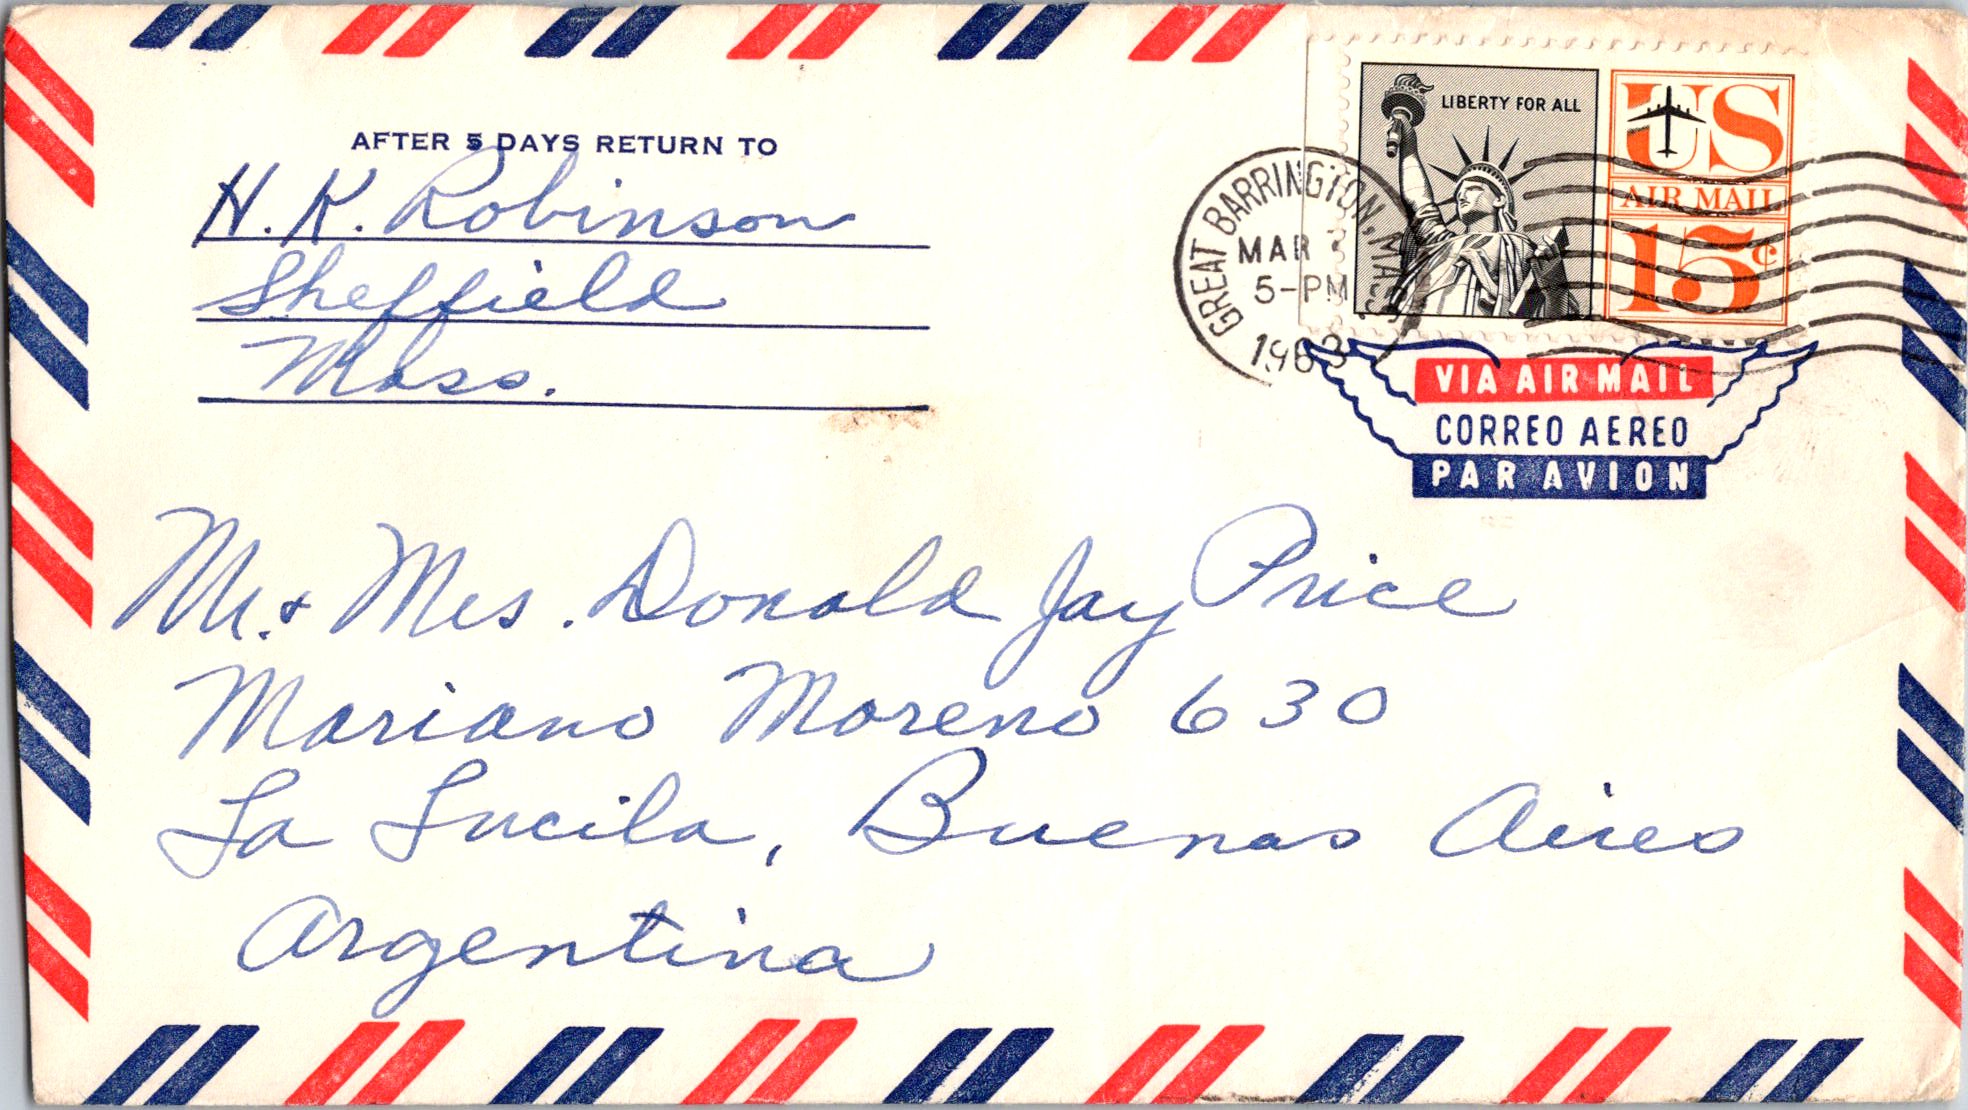 AFTER 5 DAYS RETURN TO
H. K. Robinson
Sheffield
Mass.
LIBERTY FOR ALL
US
AIR MAIL
15¢
GREAT BARRINGTON, MASS
MAR
5-PM
1963
VIA AIR MAIL
CORREO AEREO
PAR AVION
Mr. & Mrs. Donald Jay Price
Mariano Moreno 630
La Lucila, Buenas Aires
Argentina